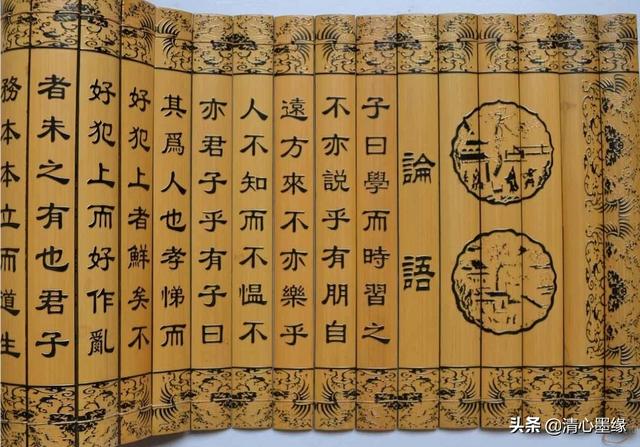 論語
子曰學而時習之
不亦説乎有朋自
遠方來不亦樂乎
人不知而不愠不
亦君子乎有子曰
其爲人也孝悌而
好犯上者鮮矣不
好犯上而好作亂
者未之有也君子
務本本立而道生
头条 @清心墨缘